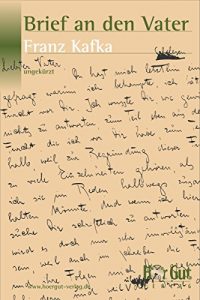 Brief an den Vater
Franz Kafka
ungekürzt
Schelesen
Liebster Vater
Du hast mich letzthin ein
gefragt warum ich behaupte ich hätte
Furcht vor Dir. Ich wusste Dir, wie gew
nichts zu antworten zum Teil eben aus der
Furcht die ich vor Dir habe zum
halb weil zur Begründung dieser
zu viele Einzelnheiten gehören, als
ich sie im Reden halbwegs zusam
halten könnte. Und wenn ich hier
suche Dir schriftlich zu antworten
wird es doch nur sehr
weil auch im Schreiben die
ihre Folgen mich
www.hoergut-verlag.de
HörGut